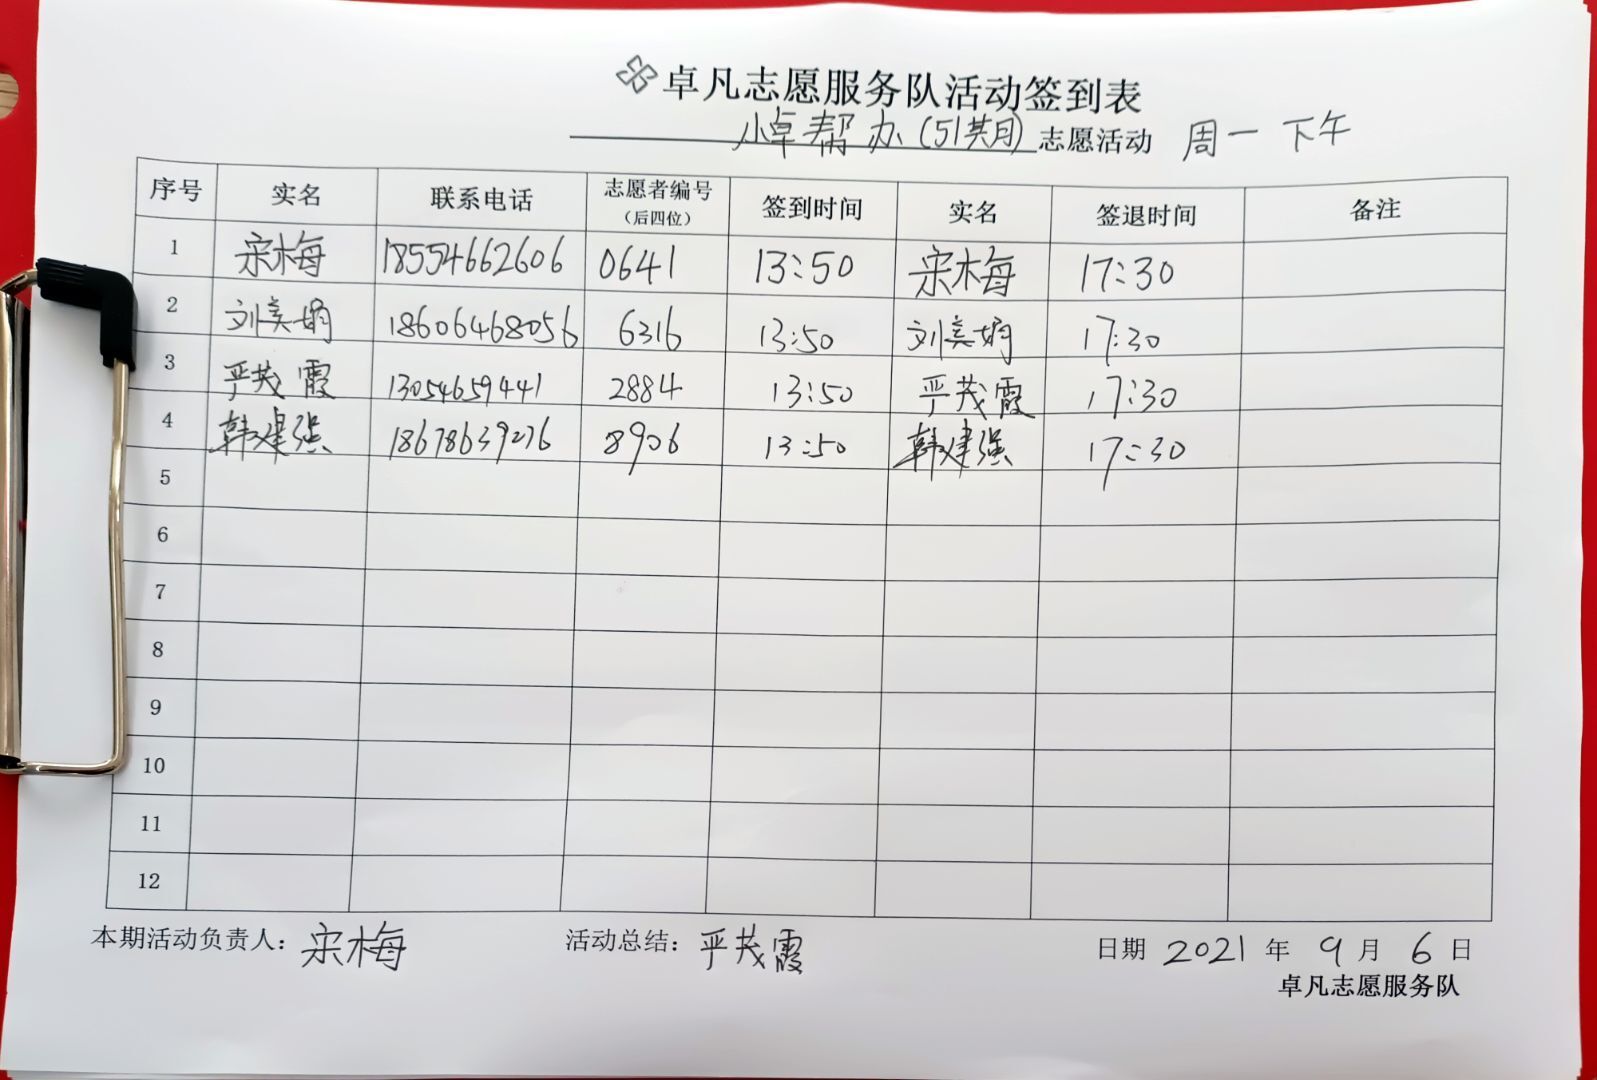 卓凡志愿服务队活动签到表
小卓帮办(51期) 志愿活动 周一下午
序号 实名 联系电话 志愿者编号(后四位) 签到时间 实名 签退时间 备注
1 宋梅 18554662606 0641 13:50 宋梅 17:30
2 刘美娟 18606468056 6316 13:50 刘美娟 17:30
3 严茂霞 13054659441 2884 13:50 严茂霞 17:30
4 韩建强 18678639276 8906 13:50 韩建强 17:30
5
6
7
8
9
10
11
12
本期活动负责人:宋梅 活动总结:严茂霞 日期 2021 年 9 月 6 日
卓凡志愿服务队